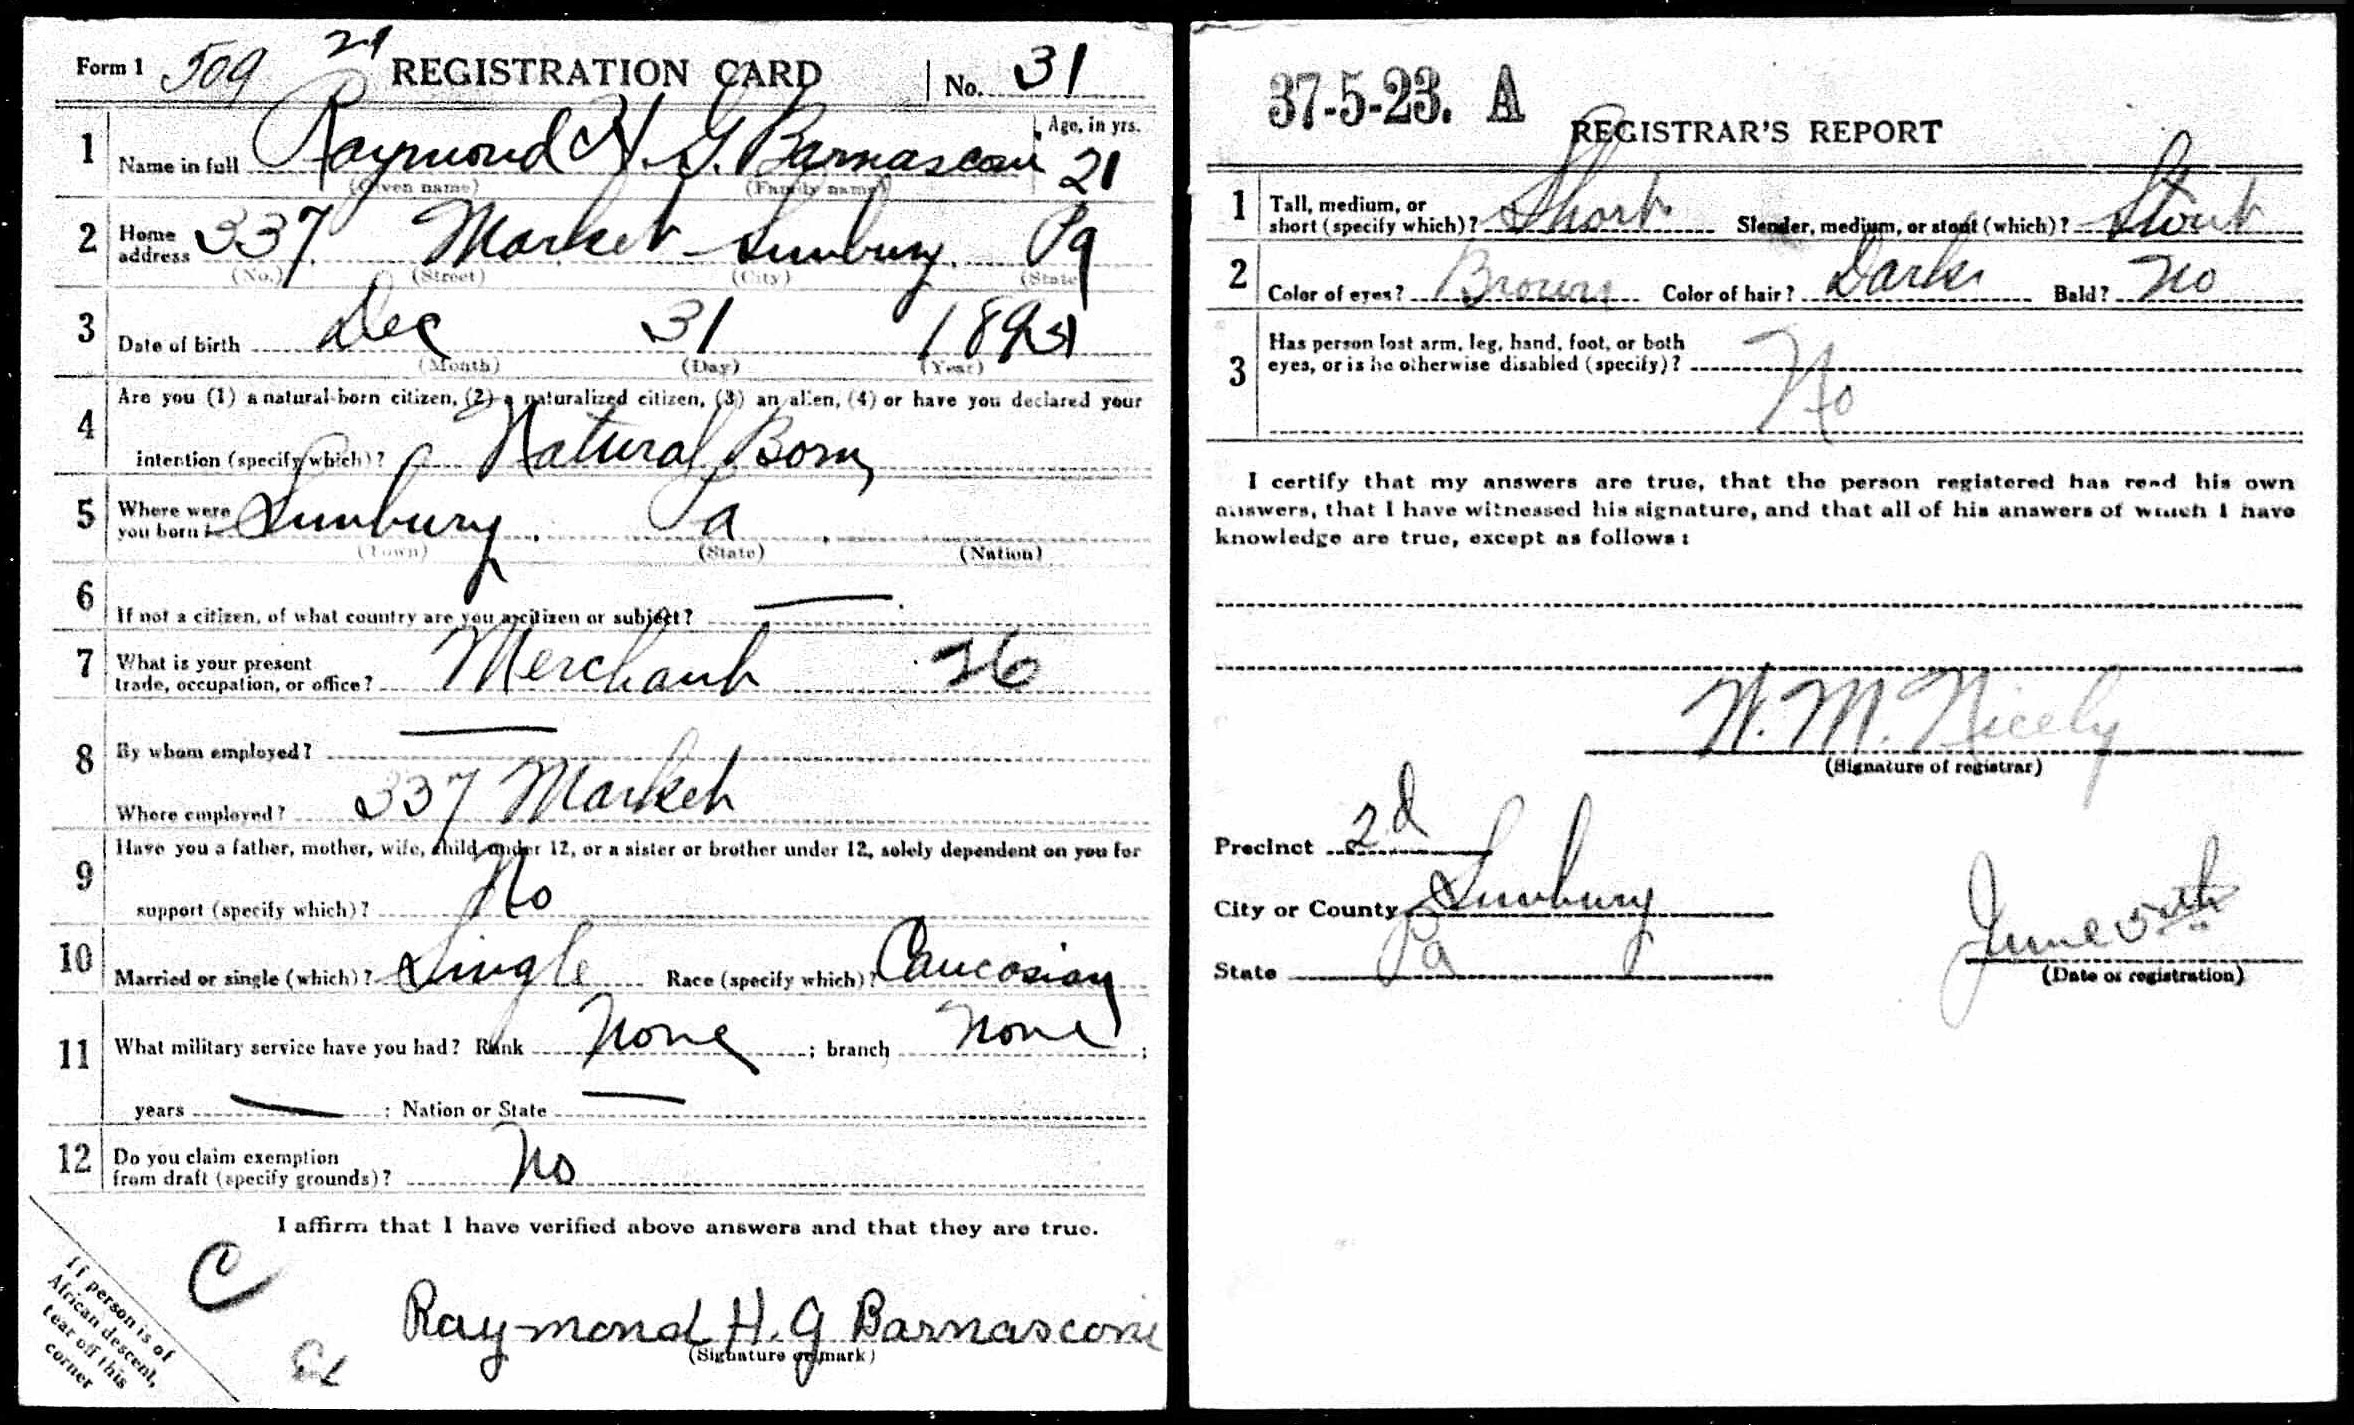 Form 1 509 21 REGISTRATION CARD No. 31
1 Name in full Raymond H. G. Barnasconi Age, in yrs. 21
(Given name) (Family name)
2 Home address 337 Market Sunbury, Pa
(No.) (Street) (City) (State)
3 Date of birth Dec 31
(Month) (Day) (Year)
4 Are you (1) a natural-born citizen, (2) a naturalized citizen, (3) an alien, (4) or have you declared your
intention (specify which)? Natural Born
5 Where were you born? Sunbury, Pa
(Town) (State) (Nation)
6 If not a citizen, of what country are you a citizen or subject? —
7 What is your present
trade, occupation, or office? Merchant 26
8 By whom employed? —
Where employed? 337 Market
9 Have you a father, mother, wife, child under 12, or a sister or brother under 12, solely dependent on you for
support (specify which)? No
10 Married or single (which)? Single Race (specify which)? Caucasian
11 What military service have you had? Rank None ; branch None ;
years — ; Nation or State —
12 Do you claim exemption
from draft (specify grounds)? No
I affirm that I have verified above answers and that they are true.
C
Raymond H. G Barnasconi
(Signature or mark)
If person is of
African descent,
tear off this
corner
37-5-23. A
REGISTRAR'S REPORT
1 Tall, medium, or
short (specify which)? Short Slender, medium, or stout (which)? Stout
2 Color of eyes? Brown Color of hair? Dark Bald? No
3 Has person lost arm, leg, hand, foot, or both
eyes, or is he otherwise disabled (specify)? No
I certify that my answers are true, that the person registered has read his own
answers, that I have witnessed his signature, and that all of his answers of which I have
knowledge are true, except as follows:
W. M. Nicely
(Signature of registrar)
Precinct 2d
City or County Sunbury
State Pa
June 5th
(Date of registration)